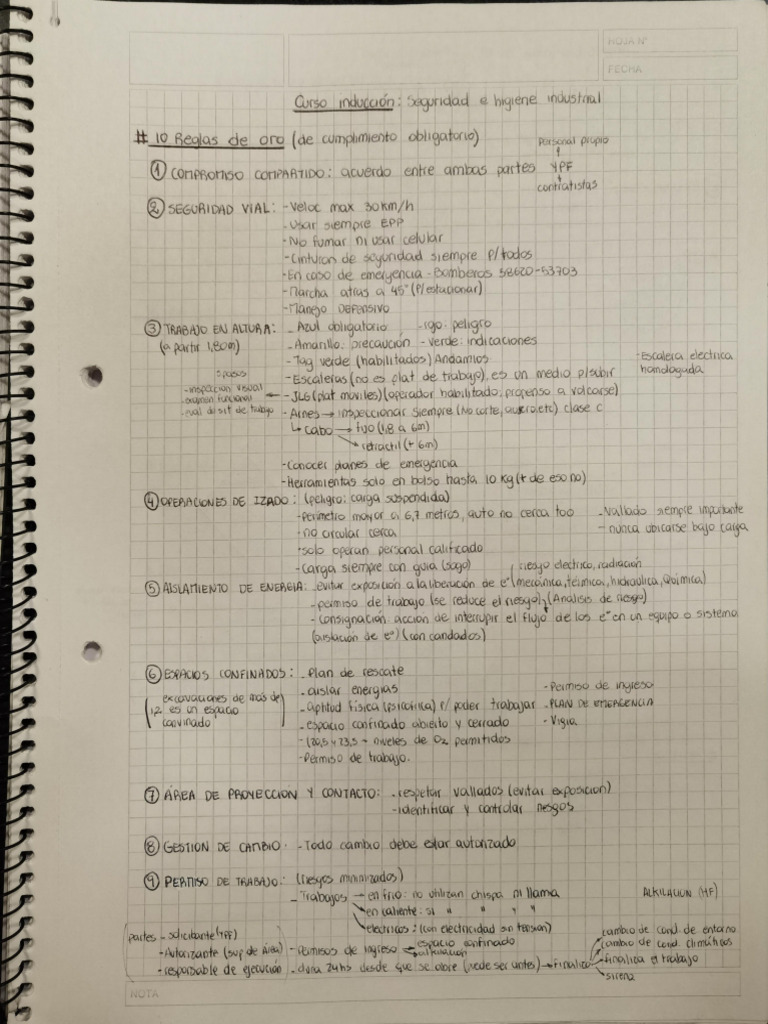 HOJA N°
FECHA
Curso inducción: Seguridad e higiene industrial
# 10 Reglas de oro (de cumplimiento obligatorio)
personal propio
① COMPROMISO COMPARTIDO: acuerdo entre ambas partes YPF
contratistas
② SEGURIDAD VIAL: - Veloc max 30km/h
- Usar siempre EPP
- No fumar ni usar celular
- Cinturon de seguridad siempre p/todos
- En caso de emergencia - Bomberos 58620-53703
- Marcha atras a 45° (P/estacionar)
- Manejo DEFENSIVO
③ TRABAJO EN ALTURA: - Azul obligatorio - rojo: peligro
(a partir 1,80m) - Amarillo: precaución - verde: indicaciones
- Tag verde (habilitados) Andamios
- Escaleras (no es plat de trabajo), es un medio p/subir
- Escalera electrica homologada
3 pasos
- inspeccion visual
- examen funcional
- eval de sit de trabajo
- JLG (plat moviles) (operador habilitado, propenso a volcarse)
- Arnes → inspeccionar siempre (No corte, etc) clase C
↳ cabo → fijo (1,8 a 6m)
→ retractil (+ 6m)
- Conocer planes de emergencia
- Herramientas solo en bolso hasta 10 Kg (+ de eso no)
④ OPERACIONES DE IZADO: (peligro: carga suspendida)
- perimetro mayor a 6,7 metros, auto no cerca too - Vallado siempre importante
- no circular cerca - nunca ubicarse bajo carga
- solo operan personal calificado
- Carga siempre con guia (soga)
riesgo electrico, radiación
⑤ AISLAMIENTO DE ENERGIA: - evitar exposición a la liberación de e° (mecánica, térmica, hidraulica, Química)
- permiso de trabajo (se reduce el riesgo), (Analisis de riesgo)
- consignación: accion de interrupir el flujo de los e° en un equipo o sistema
(aislación de e°) (con candados)
⑥ ESPACIOS CONFINADOS: - Plan de rescate
- aislar energias - Permiso de ingreso
(excavaciones de mas de 1,2 es un espacio confinado)
- aptitud física (psicofísica) p/ poder trabajar - PLAN DE EMERGENCIA
- espacio confinado abierto y cerrado - Vigia
- (20,5 y 23,5 - niveles de O2 permitidos
- Permiso de trabajo.
⑦ ÁREA DE PROYECCION Y CONTACTO: - respetar vallados (evitar exposicion)
- identificar y controlar riesgos
⑧ GESTION DE CAMBIO - Todo cambio debe estar autorizado
⑨ PERMISO DE TRABAJO: (riesgos minimizados)
- Trabajos → en frio: no utilizan chispa ni llama ALKILACION (HF)
→ en caliente: si " " " "
→ electricos: (con electricidad sin tension)
partes - solicitante (YPF)
- Autorizante (sup de Área)
- responsable de ejecución
- permisos de ingreso espacio confinado
alkilación
- dura 24hs desde que se abre (puede ser antes) → Finaliza
cambio de cond. de entorno
cambio de cond. climáticos
finaliza el trabajo
sirena
NOTA